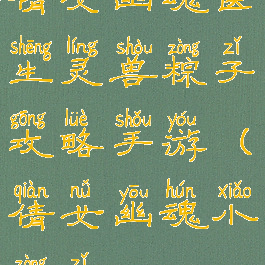 倩女幽魂医
shēng líng shòu zòng zǐ
生灵兽粽子
gōng lüè shǒu yóu
攻略手游（
qiàn nǚ yōu hún xiǎo
倩女幽魂小
zòng zǐ